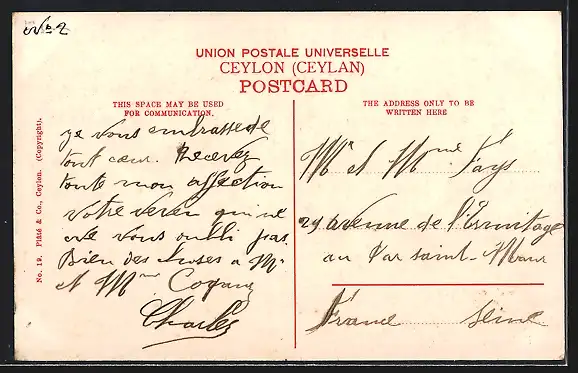 No 2
UNION POSTALE UNIVERSELLE
CEYLON (CEYLAN)
POSTCARD
THIS SPACE MAY BE USED
FOR COMMUNICATION.
THE ADDRESS ONLY TO BE
WRITTEN HERE
No. 19. Plâté & Co., Ceylon. (Copyright).
je vous embrasse de
tout cœur. Recevez
toute mon affection
votre neveu qui ne
vous oubli pas
Bien des choses a Mr
et Mme
Charles
Mr et Mme Fays
29 avenue de l'Ermitage
au Par saint-Maur
France Seine